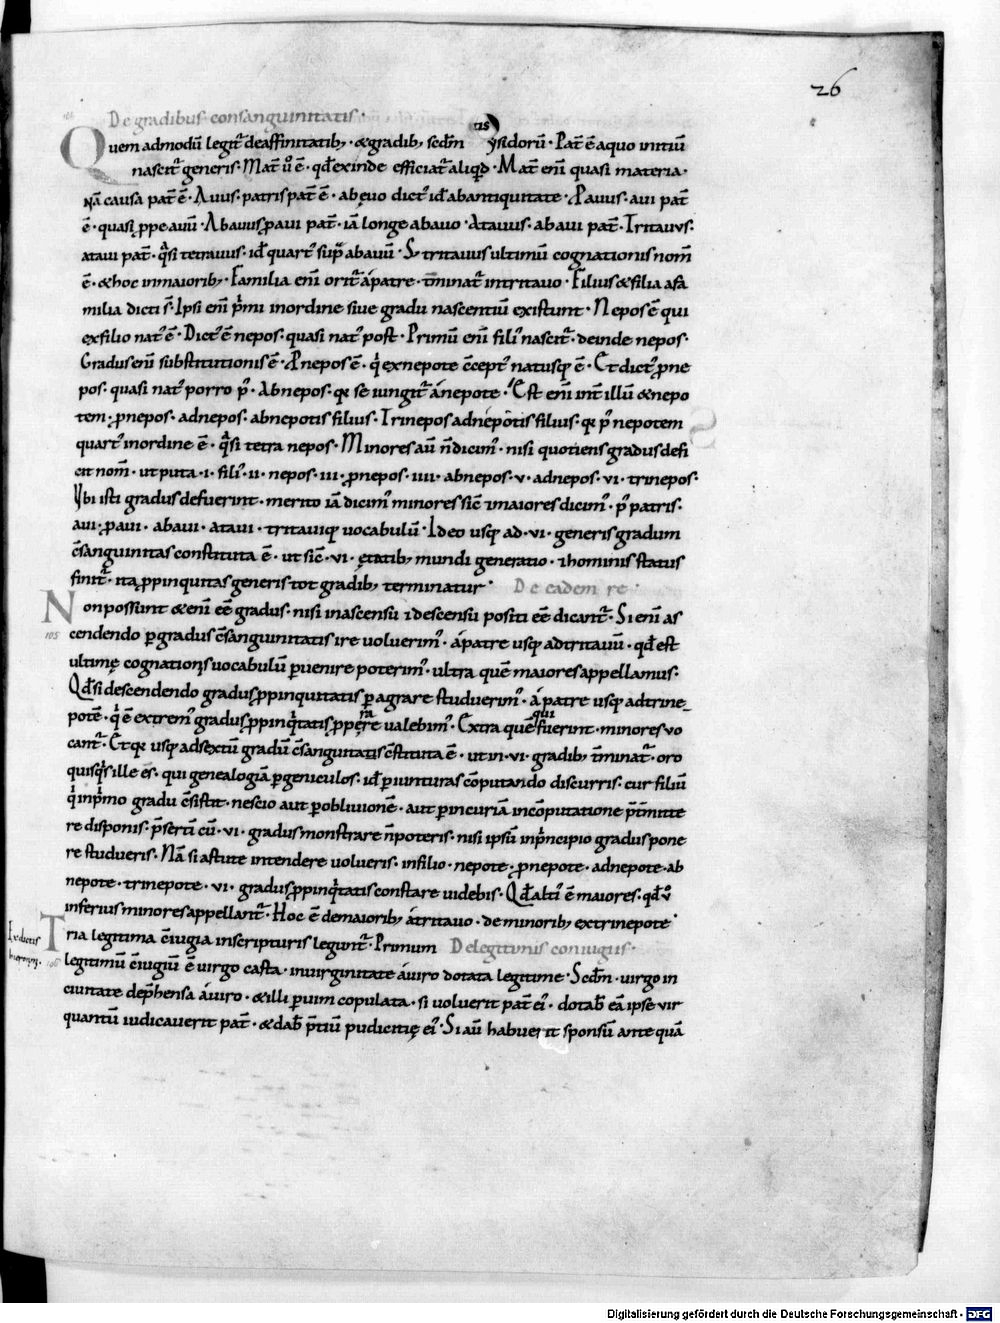 26
De gradibus consanguinitatis·
Quem admodū legit᷑ de affinitatib;· & gradib; sedm̄ ysidorū· Pat̄ ē a quo initiū
nascit᷑ generis· Mat̄ ů ē· qd̄ exinde efficiat᷑ aliqd· Mat̄ enī quasi materia·
nā causa pat̄ ē· Auus· patris pat̄ ē· ab ęuo dict᷒ id ab antiquitate· Pauus· aui pat̄
ē· quasi ꝓpe auū· Abauus ꝓaui pat̄· iā longe ab auo· Atauus· abaui pat̄· Tritauus·
ataui pat̄· qͥsi tetrauus· id quart᷒ sup̄ abauū· S; tritauus ultimū cognationis nom̄
ē· & hoc in maiorib;· Familia enī orit᷑ á patre· t̄minat᷑ in tritauo· Filius & filia a fa
milia dicti s̄· Ipsi enī pͥmi in ordine siue gradu nascentiū existunt· Nepos ē qui
ex filio nat᷒ ē· Dict᷒ ē nepos· quasi nat᷒ post· Primū enī fili᷒ nascit᷑· deinde nepos·
Gradus enī substitutionis ē· Pnepos ē· qͥ ex nepote c̄cept᷒ natusq; ē· Et dict᷒ ꝓne
pos· quasi nat᷒ porro p̄· Abnepos· qꝛ se iungit᷑ á nepote· Est enī int̄ illū & nepo
tem· ꝓnepos· adnepos· abnepotis filius· Trinepos adnepotis filius· qꝛ p̄ nepotem
quart᷒ in ordine ē· qͥsi tetra nepos· Minores aū n̄ dicim᷒· nisi quotiens gradus defi
cit nom̄· ut puta· i· fili᷒· ii· nepos· iii· ꝓnepos· iiii· abnepos· v· adnepos· vi· trinepos·
Vbi isti gradus defuerint· merito iā dicim᷒ minores sic̄ ⁊ maiores dicim᷒· p̄ patris·
aui· ꝓaui· abaui· ataui· tritauiq; uocabulū· Ideo usq; ad· vi· generis gradum
c̄sanguinitas constituta ē· ut sic̄· vi· ętatib; mundi generatio· ⁊ hominis status
finit᷑· ita ꝓpinquitas generis tot gradib; terminatur· De eadem re·
Non possunt & enī eē gradus· nisi in ascensu ⁊ descensu positi eē dicant᷑· Si enī as
105 cendendo ꝑ gradus c̄sanguinitatis ire uoluerim᷒· á patre usq; ad tritauū· qd̄ est
ultimę cognationis uocabulū ꝑuenire poterim᷒· ultra quē maiores appellamus·
Qd̄ si descendendo gradus ꝓpinquitatis ꝑagrare studuerim᷒· á patre usq; ad trine
potē· qͥ ē extrem᷒ gradus ꝓpinqͥtatis ꝓperare ualebim᷒· Extra quē qui fuerint· minores uo
cant᷑· Et qꝛ usq; ad sextū gradū c̄sanguitatis c̄stituta ē· ut in· vi· gradib; t̄minat᷑· oro
quisqͥs ille es· qui genealogiā ꝑ geniculos· id ꝑ iunturas cōputando discurris· cur filiū
qͥ in pͥmo gradu c̄sistit· nescio aut ꝑ obliuionē· aut ꝑ incuriā in cōputatione p̄t̄mitte
re disponis· p̄sertī cū· vi· gradus monstrare n̄ poteris· nisi ipsū in pͥncipio gradus pone
re studueris· Nā si astute intendere uolueris· in filio· nepote· ꝓnepote· adnepote· ab
nepote· trinepote· vi· gradus ꝓpinqͥtatis constare uidebis· Qd̄ alti᷒ ē maiores· qd̄ ů
inferius minores appellant᷑· Hoc ē de maiorib; á tritauo· de minorib; ex trinepote·
Tria legitima c̄iugia in scripturis legunt᷑· Primum De legitimis coniugiis·
Ex dictis
legitimū c̄iugiū ē uirgo casta· in uirginitate á uiro dotata legitime· Sedm̄· uirgo in
ciuitate dep̄hensa á uiro· & illi ꝑ uim copulata· si uoluerit pat̄ ei᷒· dotab̄ eā ipse uir
quantū iudicauerit pat̄· & dab̄ p̄tiū pudicitię ei᷒· Si aū habuerit sponsū ante quā
Digitalisierung gefördert durch die Deutsche Forschungsgemeinschaft - DFG